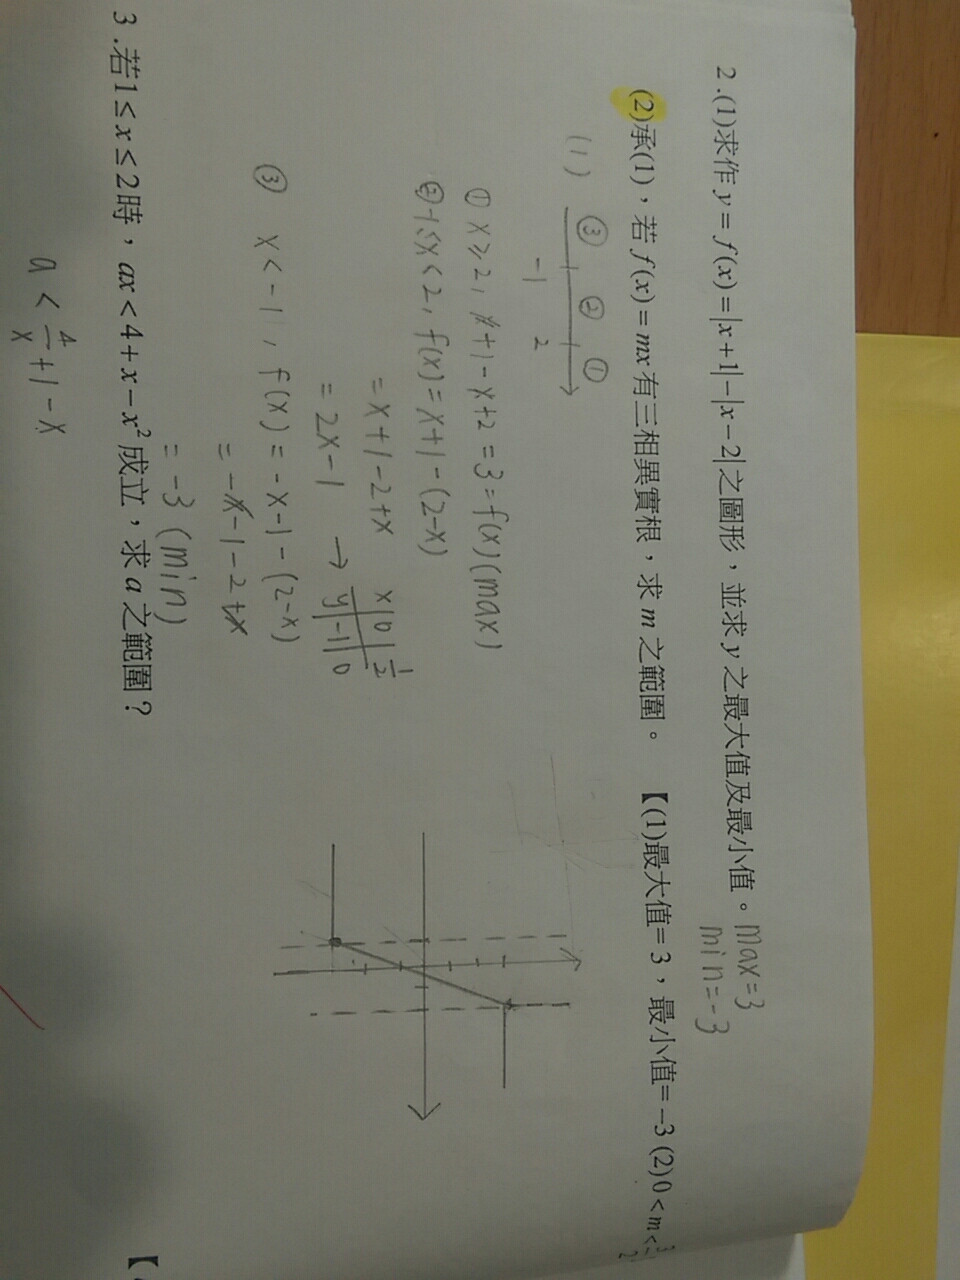 2.(1)求作y = f(x) = |x+1|−|x−2|之圖形，並求y之最大值及最小值。 max=3
min=-3
(2)承(1)，若f(x) = mx有三相異實根，求m之範圍。 【(1)最大值=3，最小值=−3 (2)0<m<3/2
(1)
③ ② ①
-1 2
① x≥2, x+1-x+2=3=f(x)(max)
② -1≤x<2, f(x)=x+1-(2-x)
=x+1-2+x
=2x-1 →
x|0|1/2
y|-1|0
③ x<-1, f(x)=-x-1-(2-x)
=-x-1-2+x
=-3(min)
3.若1≤x≤2時，ax<4+x−x²成立，求a之範圍？ 【
a<4/x+1-x